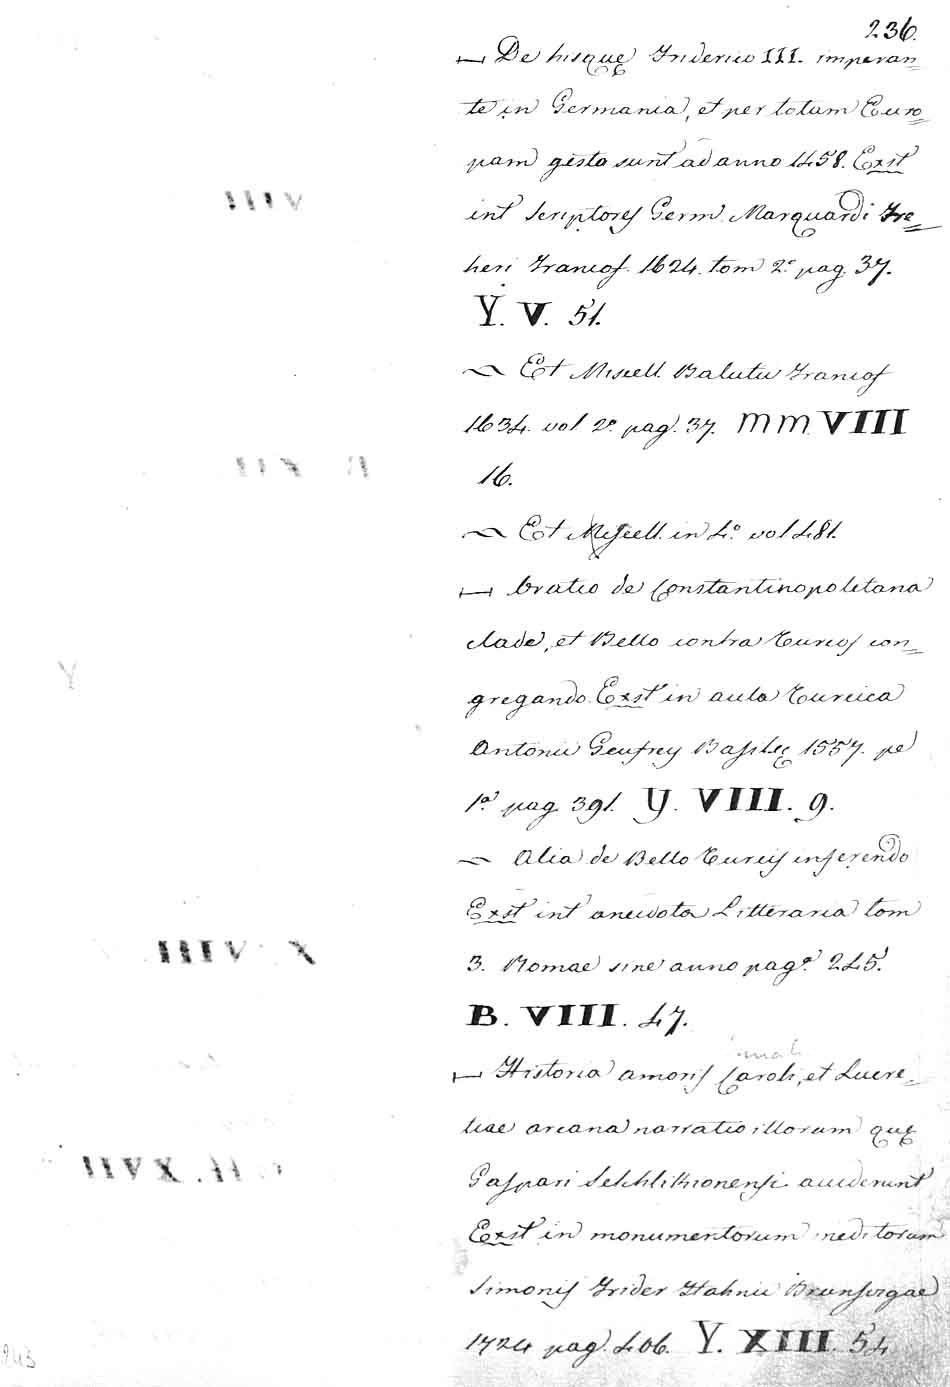 236.
De hisque Friderico III. imperan=
te in Germania, et per totam Euro=
pam gesta sunt ad anno 1458. Exst
int Scriptores Germ. Marquardi Fre=
heri Francof. 1624. tom 2.° pag. 37.
Y. V. 51.
Et Miscell. Balutii Francof
1634. vol 2.° pag. 37. mm VIII
16.
Et Miscell. in 4.° vol 481.
Oratio de Constantinopoletana
clade, et Bello contra Turcos con=
gregando. Exst in aula Turcica
Antonii Geufrey Basileę 1557. pe
1.a pag. 391. Y. VIII. 9.
Alia de Bello Turcis inferendo
Exst int anecdota Litteraria tom
3. Romae sine anno pag.e 245.
B. VIII. 47.
Historia amoris Caroli, et Lucre=
tiae arcana narratio illorum quę
Gaspari Sehlikionensi acciderunt
Exst in monumentorum ineditorum
Simonis Frider Hahnii Brunsvigae
1724 pag. 406. Y. XIII. 54
243